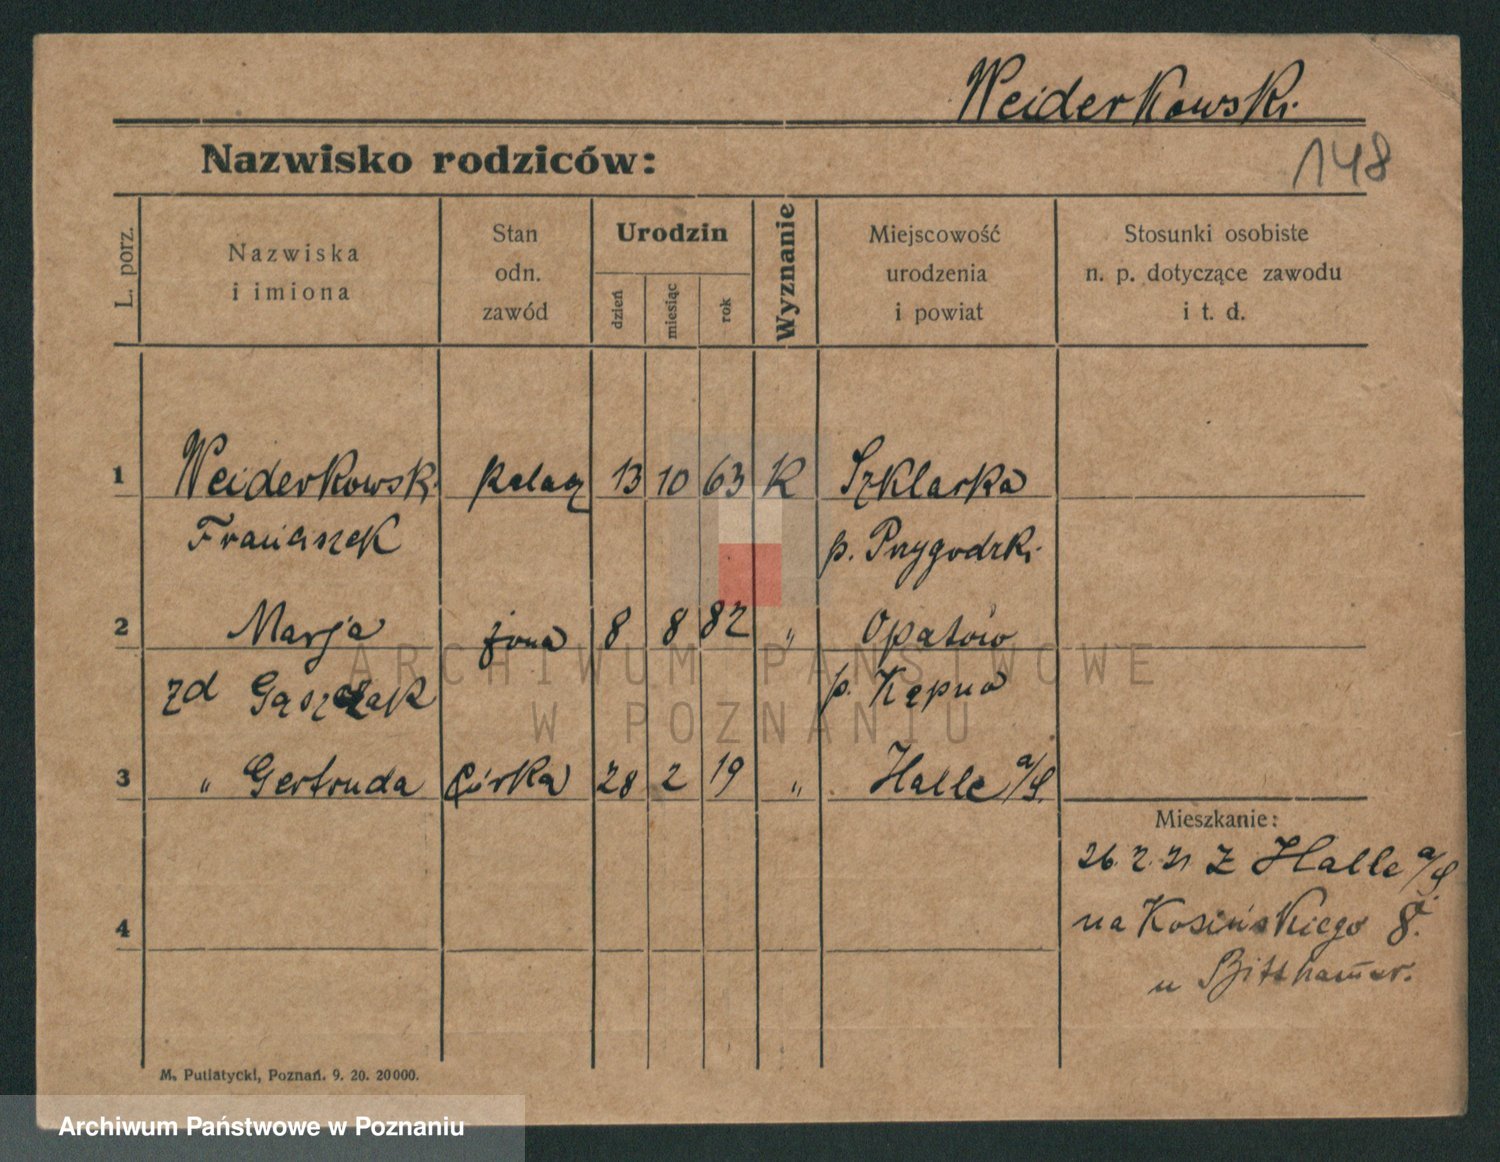 Weiderkowski.
148
Nazwisko rodziców:
L. porz.
Nazwiska
i imiona
Stan
odn.
zawód
Urodzin
dzień
miesiąc
rok
Wyznanie
Miejscowość
urodzenia
i powiat
Stosunki osobiste
n. p. dotyczące zawodu
i t. d.
1 Weiderkowski 13 10 63 K Szklarka
Franciszek p. Przygodzki.
2 Marja żona 8 8 82 " Opatów
zd Gąszczak p. Kępno
3 " Gertruda Córka 28 2 19 " Halle a/S.
Mieszkanie:
26. 2. 21 z Halle a/S.
na Kosińskiego 8.
4
u
M. Putiatycki, Poznań. 9. 20. 20000.
ARCHIWUM PAŃSTWOWE
W POZNANIU
Archiwum Państwowe w Poznaniu